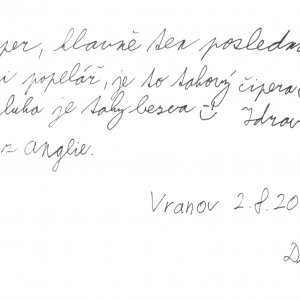 per, hlavně ten posledn
i popelář, je to takový čipera
luka je taky besva :) Zdrav
z anglie.
Vranov 2.8.20
D